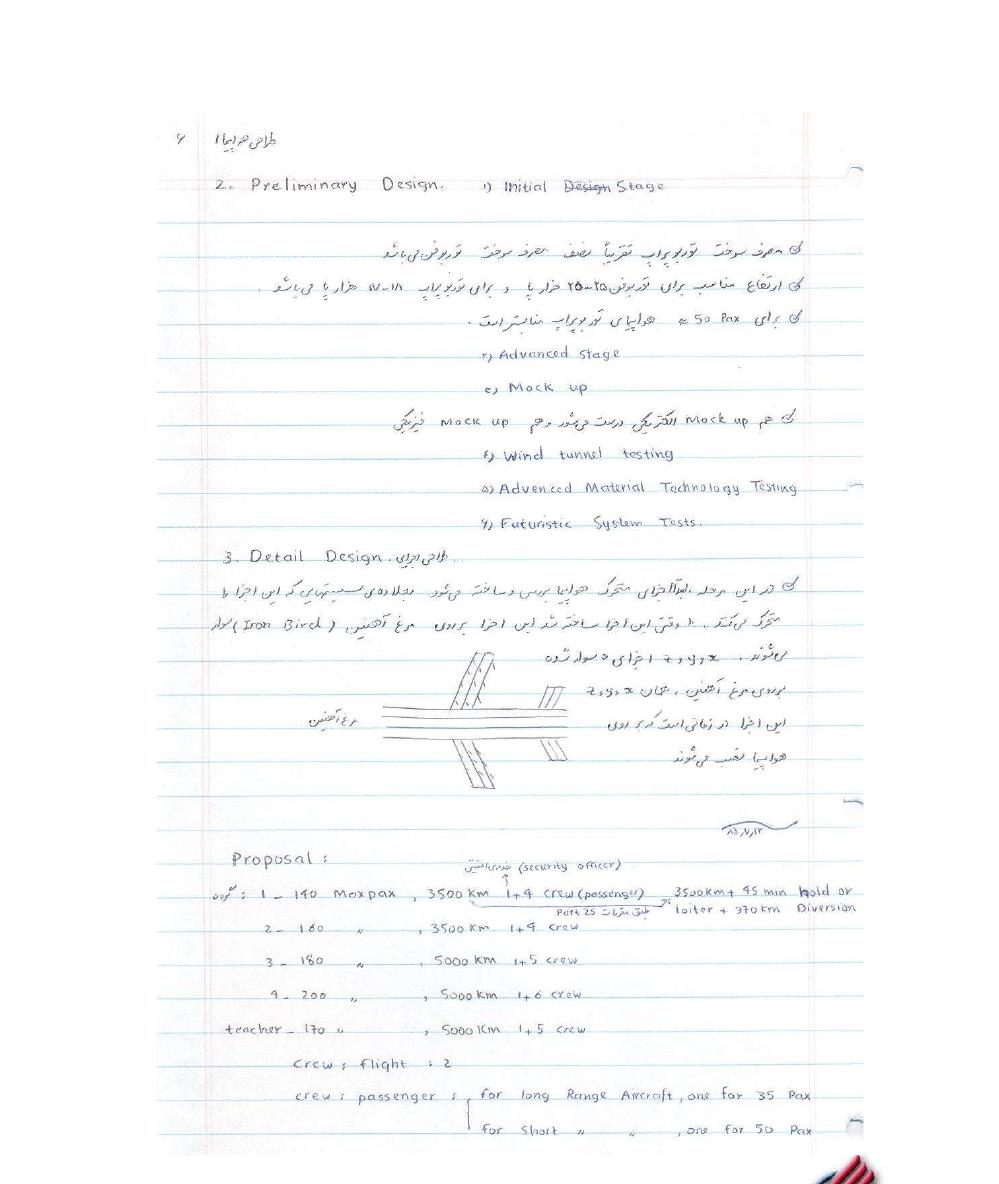 طراحی هواپیما ۱ ۶
2. Preliminary Design. ۱) Initial Design Stage
مصرف سوخت توربوپراپ تقریباً نصف مصرف سوخت توربوفن می باشد
ارتفاع مناسب برای توربوفن ۳۵-۲۵ هزار پا و برای توربوپراپ ۱۸-۱۷ هزار پا می باشد.
برای 50 Pax ≈ هواپیمای توربوپراپ مناسبتر است.
۲) Advanced Stage
۳) Mock up
هم Mock up الکتریکی درست می شود و هم Mock up فیزیکی
۴) Wind tunnel testing
۵) Advenced Material Technology Testing
۶) Futuristic System Tests.
3. Detail Design. طراحی اجزایی
در این مرحله اجزای متحرک هواپیما بررسی و ساخته می شود بعلاوه ی سیستمهایی که این اجزا را
متحرک می کنند. وقتی این اجزا ساخته شد این اجزا بر روی مرغ آهنین (Iron Bird) سوار
می شوند. x و y و z اجزای سوار شده
بر روی مرغ آهنین، همان x و y و z
این اجزا در زمانی است که بر روی
هواپیما نصب می شوند
مرغ آهنین
۸۵,۷,۱۲
Proposal :
(security officer)
گروه : 1 - 140 Maxpax , 3500 km 1+4 crew (passenger) 3500km + 45 min hold or
طبق مقررات Part 25 loiter + 370 km Diversion
2 - 160 〃 , 3500 km 1+4 crew
3 - 180 〃 , 5000 km 1+5 crew
4 - 200 〃 , 5000 km 1+6 crew
teacher - 170 〃 , 5000 km 1+5 crew
crew : flight : 2
crew : passenger : for long Range Aircraft , one for 35 Pax
for Short 〃 〃 , one for 50 Pax